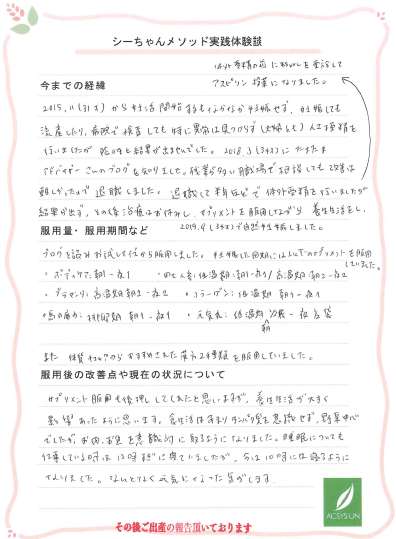 シーちゃんメソッド実践体験談
体外受精の前に を受診して
アスピリン 授業になりました。
今までの経緯
2015.11(31才)から妊活開始するもなかなか妊娠せず、妊娠しても
流産したり、病院で検査しても特に異常は見つからず(夫婦とも)人工授精を
行いましたが 結果が出ませんでした。2018.3(34才)にたまたま
アドバイザー さんのブログを知りました。残業が多い職場で相談しても改善は
難しかったので退職しました。退職して半年ほどで体外受精を行いましたが
結果が出ず、その後治療はお休みし、サプリメントを服用しながら 養生生活をし、
2019.4(35才)で自然妊娠しました。
服用量・服用期間など
ブログを読みお試しセットから服用しました。妊娠した周期には以下のサプリメントを服用
していました。
・ボディケア:朝1-夜1 ・ 低温期:朝1-夜1/高温期:朝2-夜2
・プラセンタ:高温期 朝2-夜2 ・コラーゲン:低温期 朝1-夜1
・馬の 力:排卵期 朝1-夜1 ・元気 :低温期 朝
また 体質チェックからおすすめされた漢方2種類を服用していました。
服用後の改善点や現在の状況について
サプリメント服用も後押ししてくれたと思いますが、養生生活が大きく
影響あったように思います。食生活はあまりタンパク質を意識せず、野菜中心
でしたが、お肉、お魚を意識的に取るようになりました。睡眠についても
仕事している時は12時すぎに寝ていましたが、今は10時には寝るように
なりました。なんとなく元気になった気がします。
ACSYS-UN
その後ご出産の報告頂いております